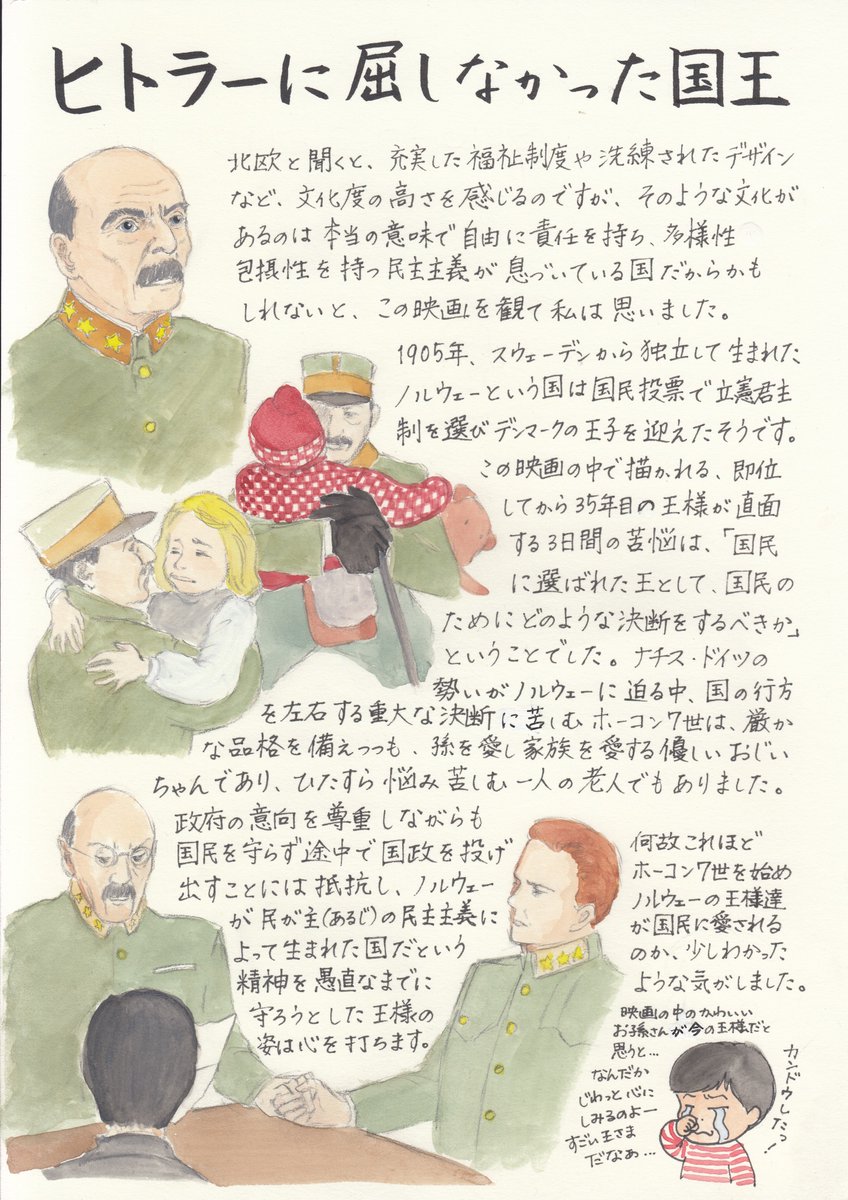 ヒトラーに屈しなかった国王
北欧と聞くと、充実した福祉制度や洗練されたデザイン
など、文化度の高さを感じるのですが、そのような文化が
あるのは本当の意味で自由に責任を持ち、多様性
包摂性を持つ民主主義が息づいている国だからかも
しれないと、この映画を観て私は思いました。
1905年、スウェーデンから独立して生まれた
ノルウェーという国は国民投票で立憲君主
制を選びデンマークの王子を迎えたそうです。
この映画の中で描かれる、即位
してから35年目の王様が直面
する3日間の苦悩は、「国民
に選ばれた王として、国民の
ためにどのような決断をするべきか」
ということでした。ナチス・ドイツの
勢いがノルウェーに迫る中、国の行方
を左右する重大な決断に苦しむホーコン7世は、厳か
な品格を備えつつも、孫を愛し家族を愛する優しいおじい
ちゃんであり、ひたすら悩み苦しむ一人の老人でもありました。
政府の意向を尊重しながらも
国民を守らず途中で国政を投げ
出すことには抵抗し、ノルウェー
が民が主(あるじ)の民主主義に
よって生まれた国だという
精神を愚直なまでに
守ろうとした王様の
姿は心を打ちます。
何故これほど
ホーコン7世を始め
ノルウェーの王様達
が国民に愛される
のか、少しわかった
ような気がしました。
映画の中のかわいい
お孫さんが今の王様だと
思うと…
なんだか
じわっと心に
しみるのよー
すごい王さま
だなぁ…
カンドウしたっ!